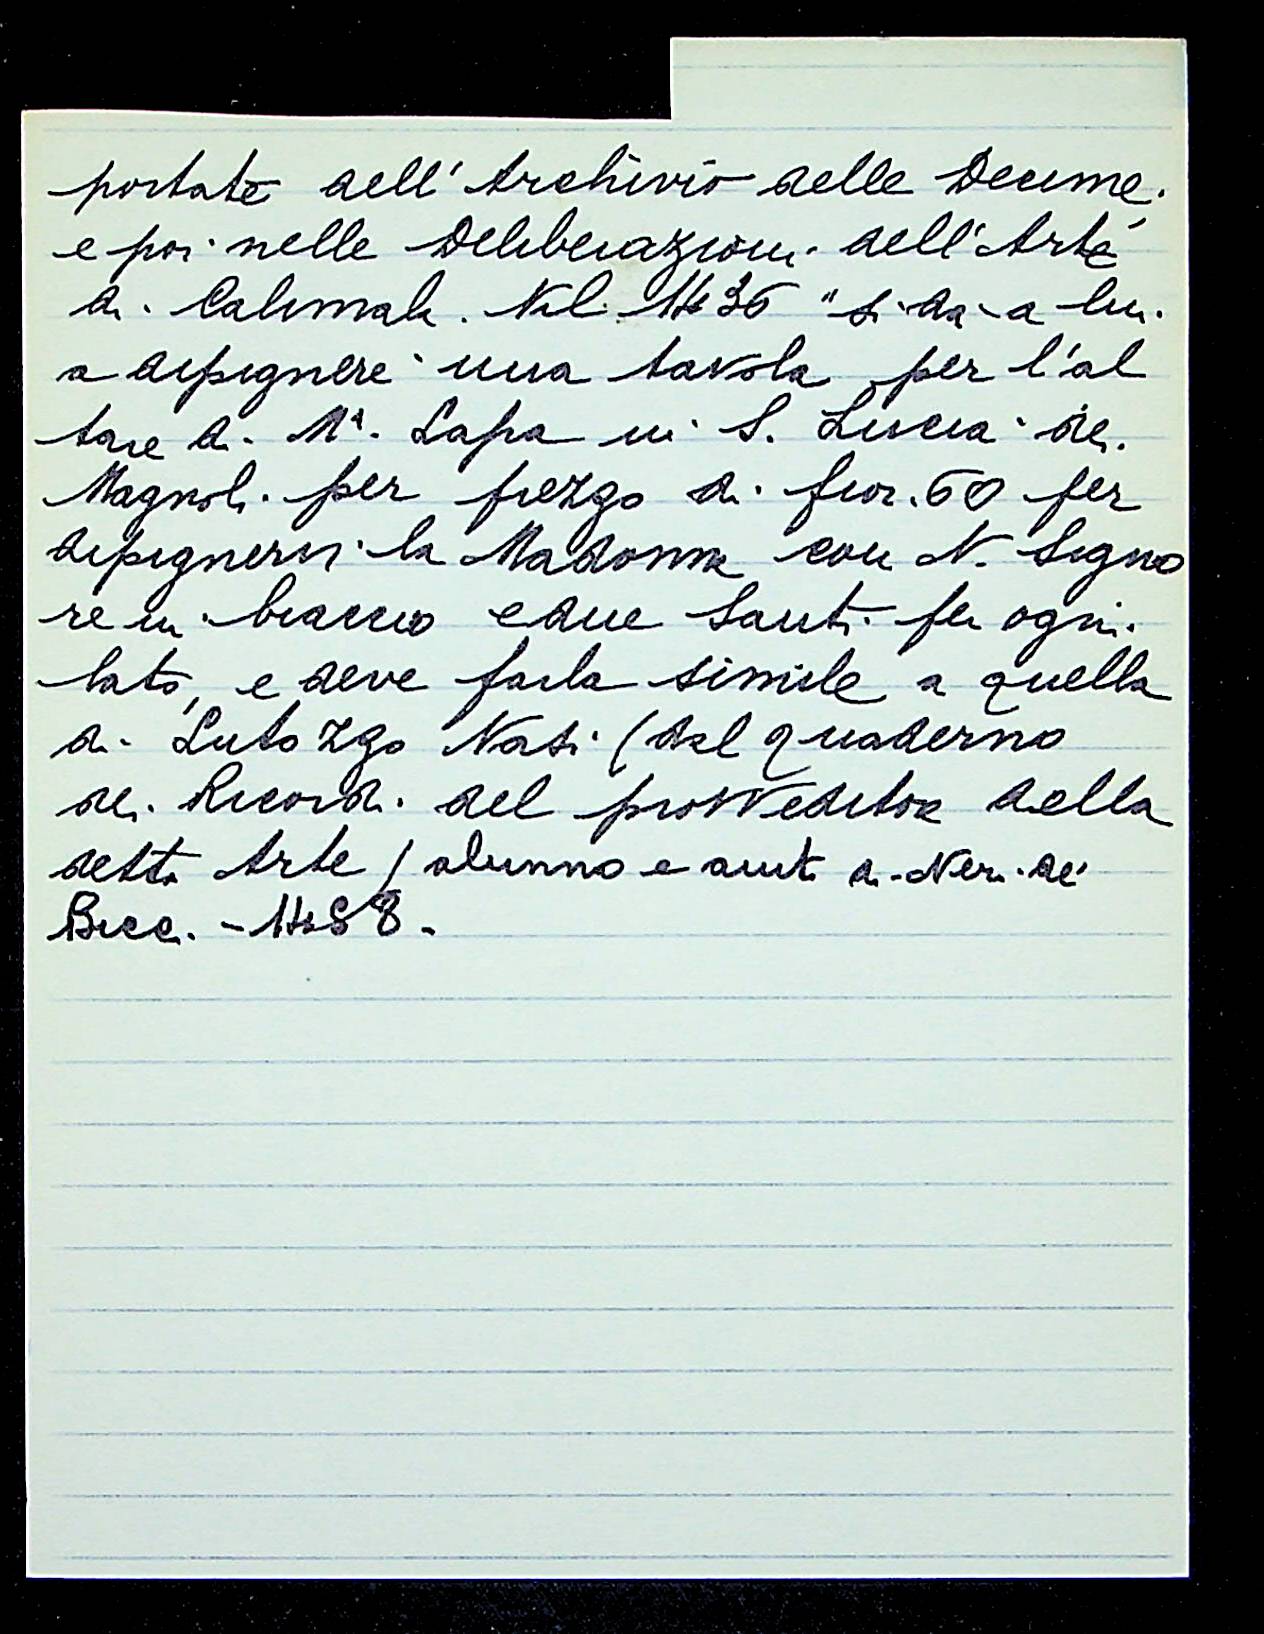 portate dell'Archivio delle Decime.
e poi nelle Deliberazioni dell'Arte
di Calimala. Nel 1436 "si dà a lui
a dipignere una tavola per l'al
tare di Mª. Lapa in S. Lucia dei
Magnoli per prezzo di fior. 60 per
dipignervi la Madonna con N. Signo
re in braccio e due Santi per ogni
lato, e deve farla simile a quella
di Lutozzo Nasi (dal quaderno
dei Ricordi del provveditore della
detta Arte / alunno e aiuto di Neri de'
Bicci. -